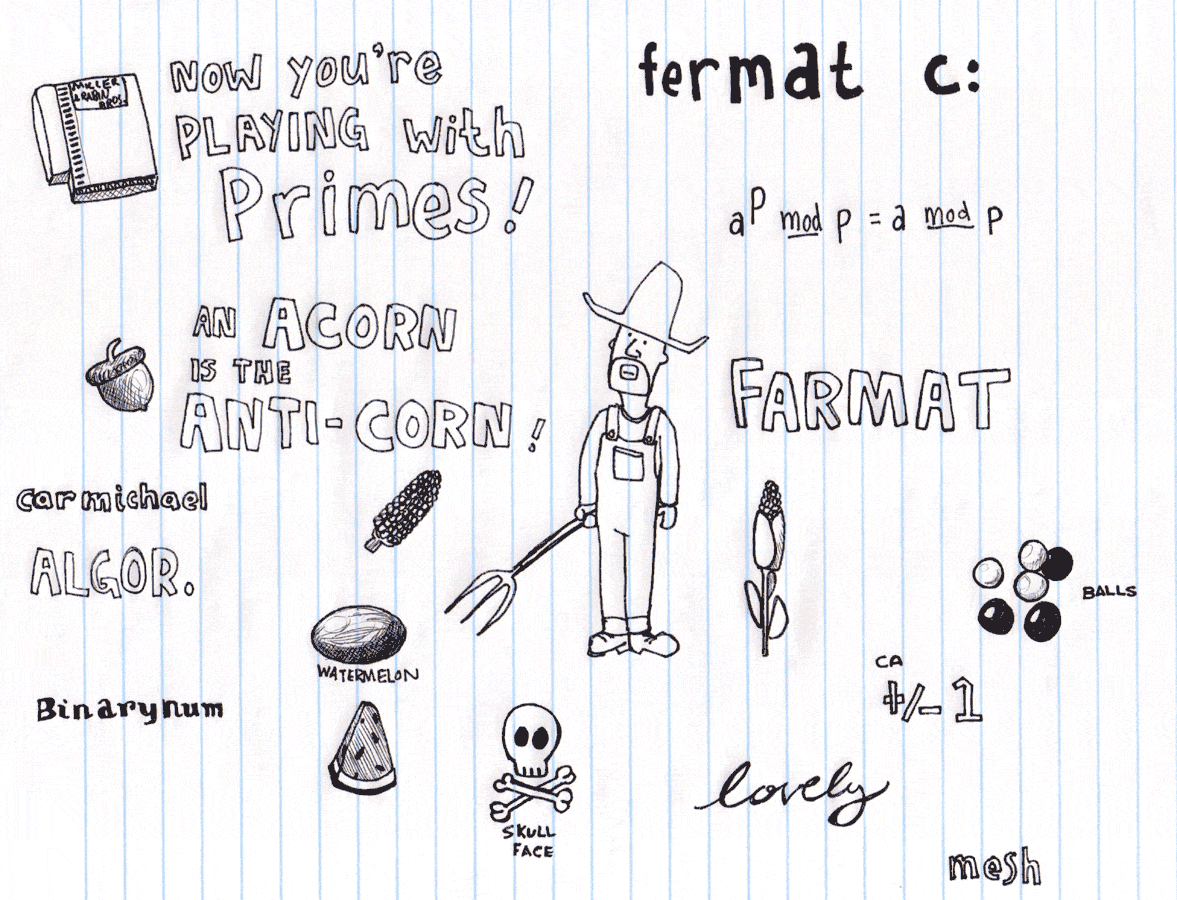 MILLER
& RABIN
BROS.
NOW you're
PLAYING with
Primes!
fermat c:
a^p mod p = a mod p
AN ACORN
IS THE
ANTI-CORN!
FARMAT
carmichael
ALGOR.
BALLS
WATERMELON
CA
+/- 1
Binarynum
lovely
SKULL
FACE
mesh